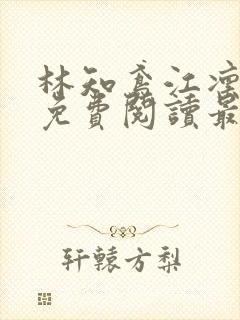 林知鸢江凛
免費閱讀最
轩辕方梨